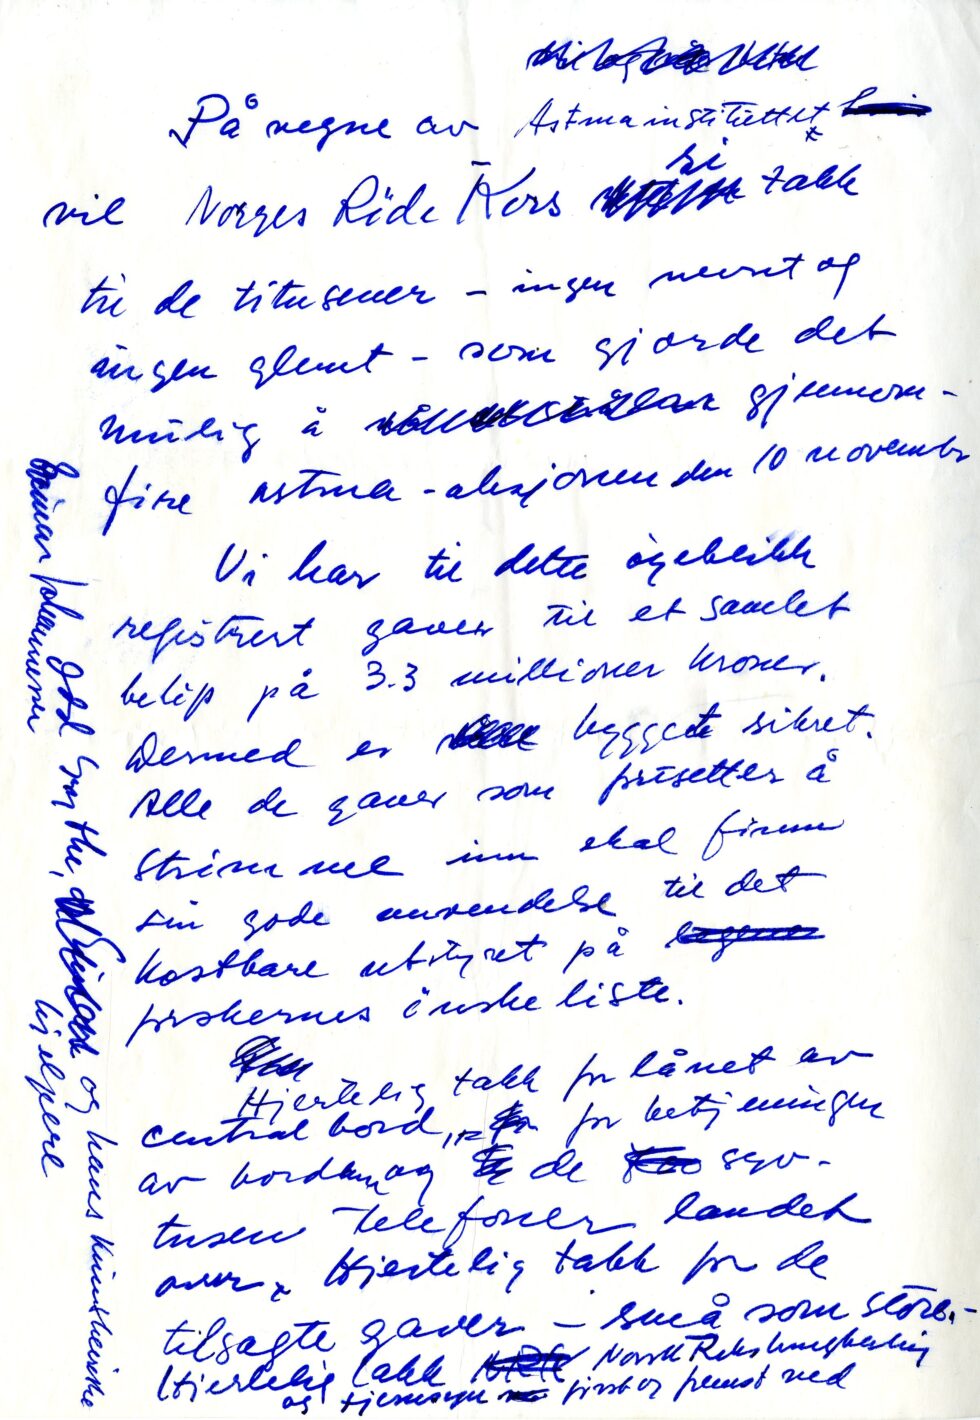 På vegne av Astmainstituttet
vil Norges Røde Kors si takk
til de titusener – ingen nevnt og
ingen glemt – som gjorde det
mulig å gjennom-
føre astma-aksjonen den 10 november
Vi har til dette øyeblikk
registrert gaver til et samlet
beløp på 3.3 millioner kroner.
Dermed er bygget sikret.
Alle de gaver som fortsetter å
strømme inn skal finne
sin gode anvendelse til det
kostbare utstyret på
forskernes ønskeliste.
Hjertelig takk for lånet av
centralbord, for betjeningen
av bordene og de syv-
tusen telefoner landet
over. Hjertelig takk for de
tilsagte gaver – små som store. –
Hjertelig takk Norsk Rikskringkasting
og Fjernsyn først og fremst ved
Einar Johannessen
Odd Grythe, og hans kunstneriske
hjelpere